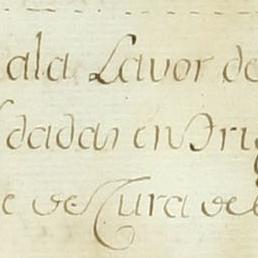 ala Lavor de
dadas en Dri
e de Cura de